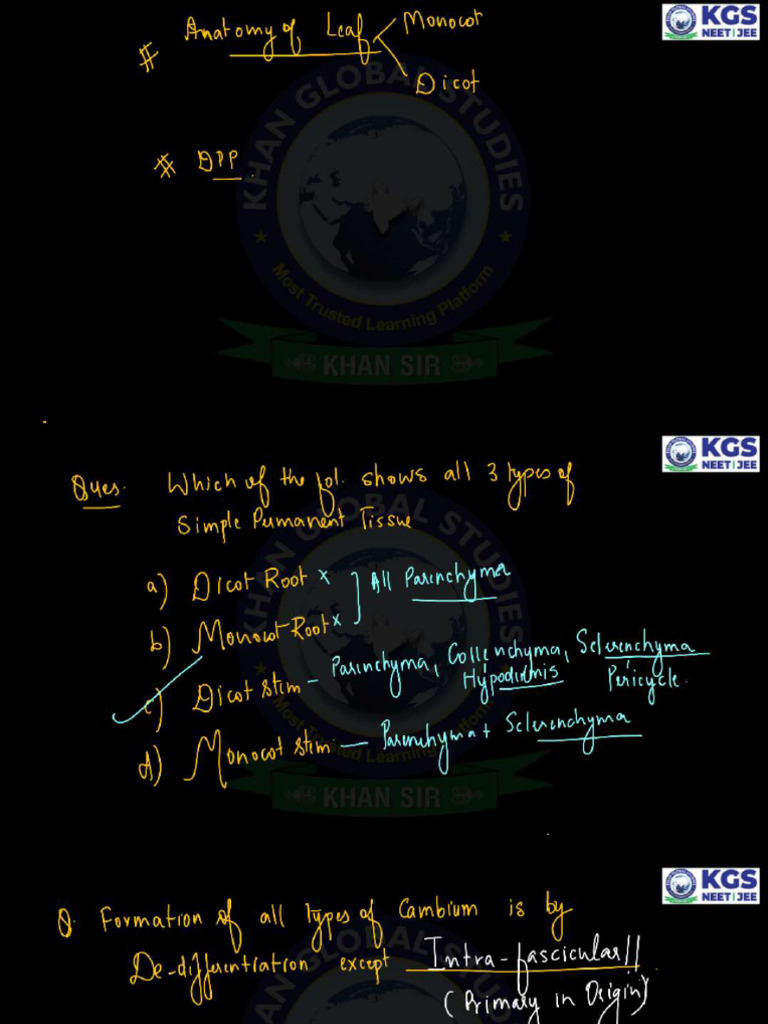 # Anatomy of Leaf < Monocot
Dicot
KGS
NEET | JEE
# DPP
KHAN GLOBAL STUDIES
Most Trusted Learning Platform
KHAN SIR
KGS
NEET | JEE
Ques. Which of the fol. shows all 3 types of
Simple Permanent Tissue
a) Dicot Root × ] All Parenchyma
b) Monocot Root ×
c) Dicot stem – Parenchyma, Collenchyma, Sclerenchyma
Hypodermis Pericycle.
d) Monocot stem — Parenchyma + Sclerenchyma
KHAN GLOBAL STUDIES
Most Trusted Learning Platform
KHAN SIR
KGS
NEET | JEE
Q. Formation of all types of Cambium is by
De-differentiation except Intra-fascicular||
(Primary in Origin)